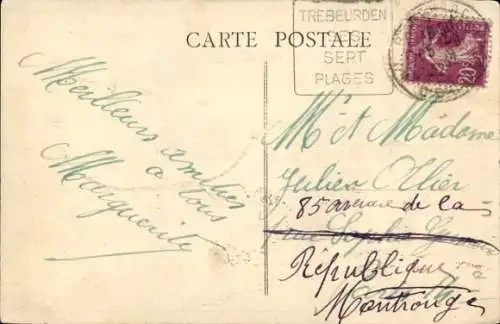 CARTE POSTALE
TREBEURDEN
SES
SEPT
PLAGES
20
Meilleurs amitiés
à vous
Marguerite
Mr et Madame
Julien Ollier
85 avenue de la
rue Sophie
République
Montrouge